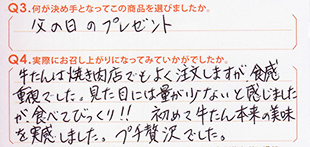 Q3.何が決め手となってこの商品を選びましたか。
父の日のプレゼント
Q4.実際にお召し上がりになってみていかがでしたか。
牛たんは焼き肉店でもよく注文しますが、食感
重視でした。見た目には量が少ないと感じました
が食べてびっくり!! 初めて牛たん本来の美味
を実感しました。プチ贅沢でした。